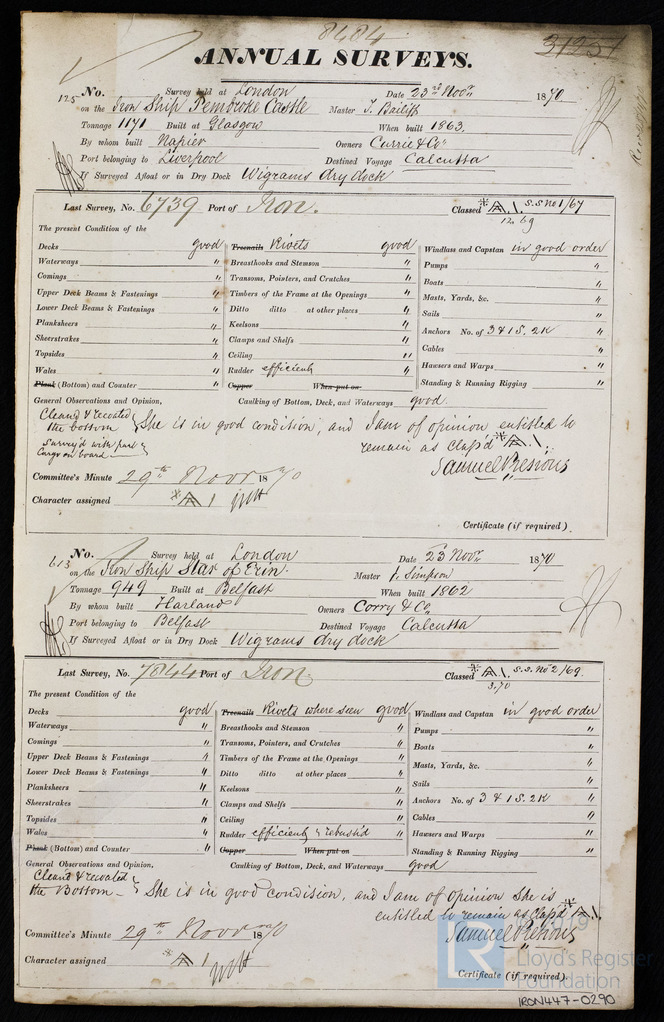 8484
31251
ANNUAL SURVEYS.
125 No. Survey held at London Date 23rd Novr 1870
on the Iron Ship Pembroke Castle Master J. Bailiff
Tonnage 1171 Built at Glasgow When built 1863.
By whom built Napier Owners Currie & Co
Port belonging to Liverpool Destined Voyage Calcutta
If Surveyed Afloat or in Dry Dock Wigrams dry dock
Last Survey, No. 6739 Port of Iron. Classed A.1. S.S. No 1/67
12.69
The present Condition of the
Decks good Treenails Rivets good Windlass and Capstan in good order
Waterways " Breasthooks and Stemson " Pumps "
Comings " Transoms, Pointers, and Crutches " Boats "
Upper Deck Beams & Fastenings " Timbers of the Frame at the Openings " Masts, Yards, &c. "
Lower Deck Beams & Fastenings " Ditto ditto at other places " Sails "
Planksheers " Keelsons " Anchors No. of 3 & 1 S. 2K "
Sheerstrakes " Clamps and Shelfs " Cables "
Topsides " Ceiling " Hawsers and Warps "
Wales " Rudder efficient Standing & Running Rigging "
Plank (Bottom) and Counter " Copper When put on
General Observations and Opinion, Caulking of Bottom, Deck, and Waterways good
Cleaned & recoated the bottom She is in good condition, and I am of opinion entitled to
Survey'd with part Cargo on board remain as Class'd A.1.
Samuel Pretious
Committee's Minute 29th Novr 1870
Character assigned A 1
Certificate (if required)
613 No. Survey held at London Date 23 Novr 1870
on the Iron Ship Star of Erin. Master J. Simpson
Tonnage 949 Built at Belfast When built 1862
By whom built Harland Owners Corry & Co
Port belonging to Belfast Destined Voyage Calcutta
If Surveyed Afloat or in Dry Dock Wigrams dry dock
Last Survey, No. 7844 Port of Iron. Classed A.1. S.S. No 2/69.
3.70
The present Condition of the
Decks good Treenails Rivets where seen good Windlass and Capstan in good order
Waterways " Breasthooks and Stemson " Pumps "
Comings " Transoms, Pointers, and Crutches " Boats "
Upper Deck Beams & Fastenings " Timbers of the Frame at the Openings " Masts, Yards, &c. "
Lower Deck Beams & Fastenings " Ditto ditto at other places " Sails "
Planksheers " Keelsons " Anchors No. of 3 & 1 S. 2K "
Sheerstrakes " Clamps and Shelfs " Cables "
Topsides " Ceiling " Hawsers and Warps "
Wales " Rudder efficient & rebush'd Standing & Running Rigging "
Plank (Bottom) and Counter " Copper When put on
General Observations and Opinion, Caulking of Bottom, Deck, and Waterways good
Cleaned & recoated the Bottom She is in good condition, and I am of Opinion She is
entitled to remain as Class'd A.1.
Samuel Pretious
Committee's Minute 29th Novr 1870
Character assigned A 1
Certificate (if required).
Lloyd's Register
Foundation
IRON447-0290